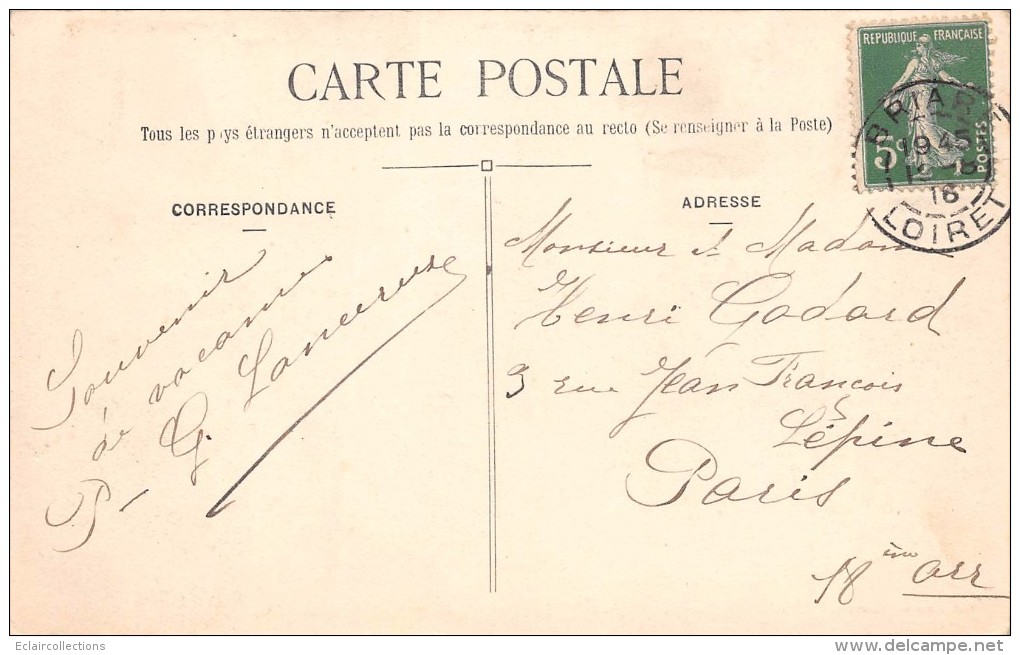 CARTE POSTALE
Tous les pays étrangers n'acceptent pas la correspondance au recto (Se renseigner à la Poste)
CORRESPONDANCE
Souvenir
de vacances
P. G.
ADRESSE
Monsieur et Madame
Henri Godard
3 rue Jean François
Lépine
Paris
18 ème arr
REPUBLIQUE FRANÇAISE
5c
POSTES
BRIARE
19 45
12-8
18
LOIRET
Eclaircollections
www.delcampe.net